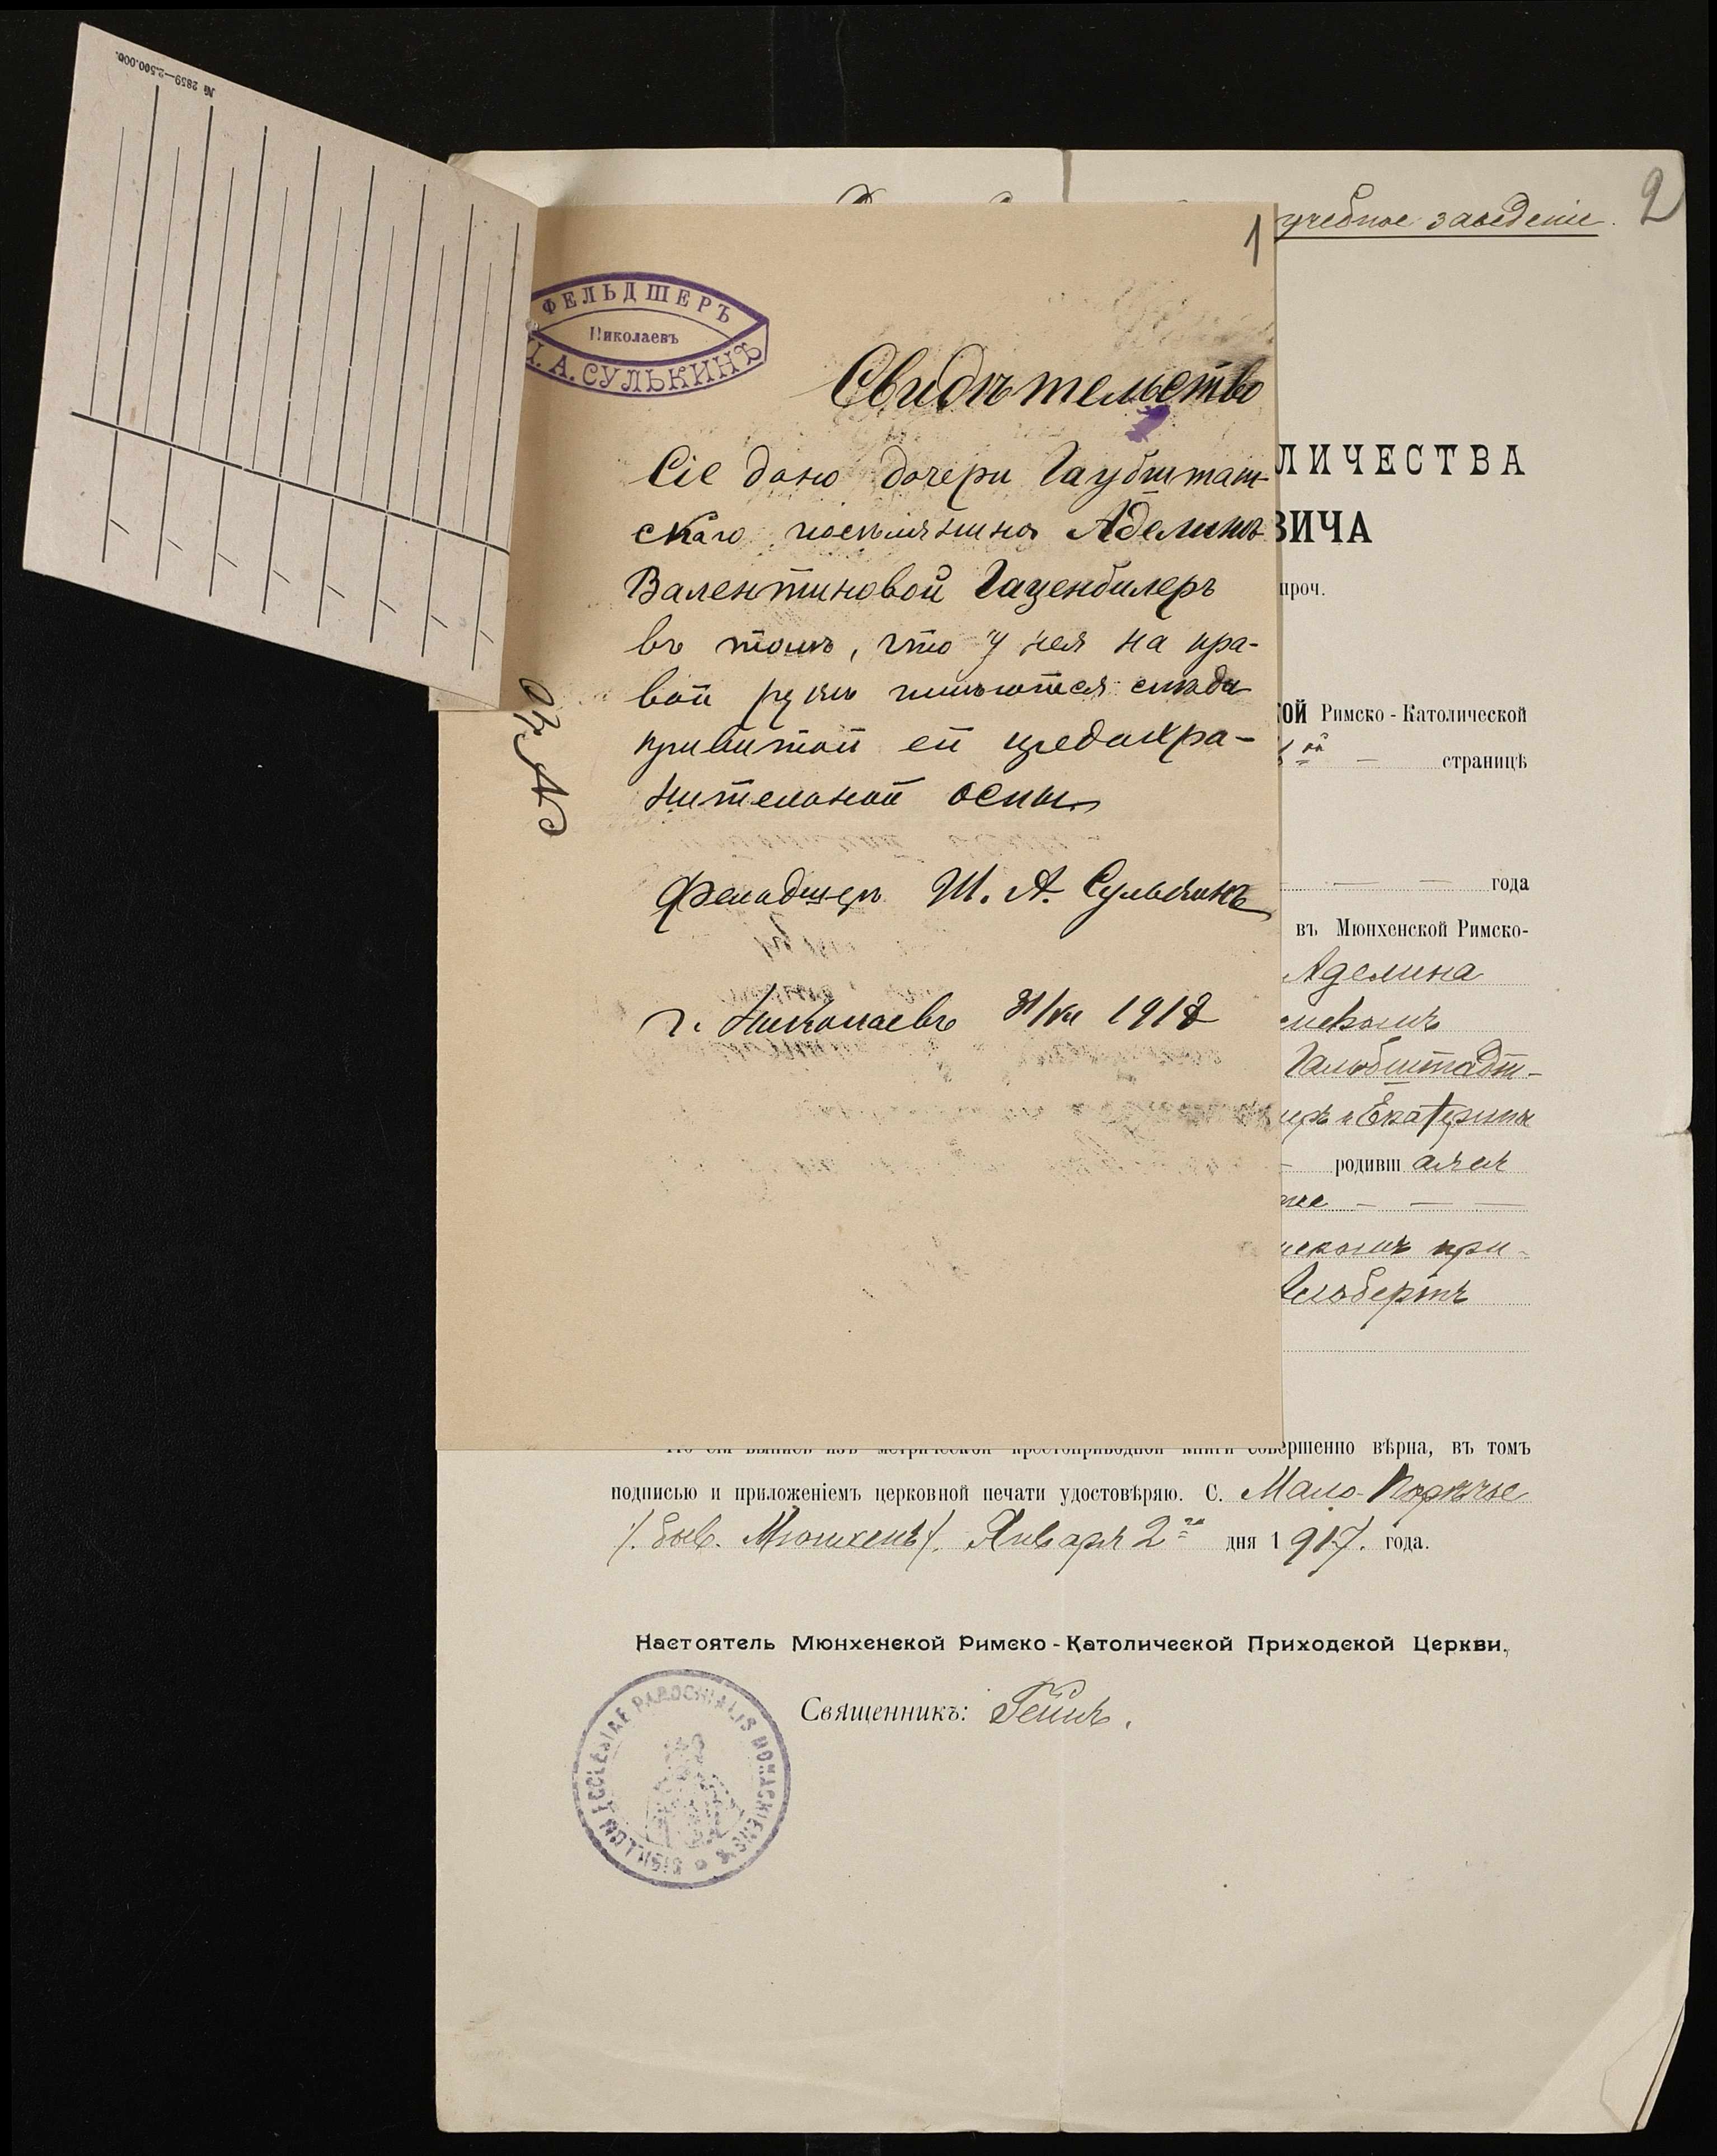 № 2859—2.500.000.
2
учебное заведеніе.
1
ФЕЛЬДШЕРЪ
Николаевъ
А. СУЛЬКИНЪ
Свидѣтельство
Сіе дано дочери Гаубштат-
скаго поселянина Аделинѣ
Валентиновой Гаценбилеръ
въ томъ, что у нея на пра-
вой рукѣ имѣются слѣды
привитой ей предохра-
нительной оспы
Фельдшеръ Ш. А. Сулькинъ
г. Николаевъ 31/VII 1918
ЛИЧЕСТВА
ВИЧА
проч.
ОЙ Римско-Католической
страницѣ
года
въ Мюнхенской Римско-
Аделина
Гальбштадт-
и Екатерины
родивш аяся
при-
Альбертъ
совершенно вѣрна, въ томъ
подписью и приложеніемъ церковной печати удостовѣряю. С. Мало-Порѣчье
/. быв. Мюнхенъ/. Января 2го дня 1917. года.
Настоятель Мюнхенской Римско-Католической Приходской Церкви,
Священникъ:
SIGILLUM ECCLESIAE PAROCHIALIS